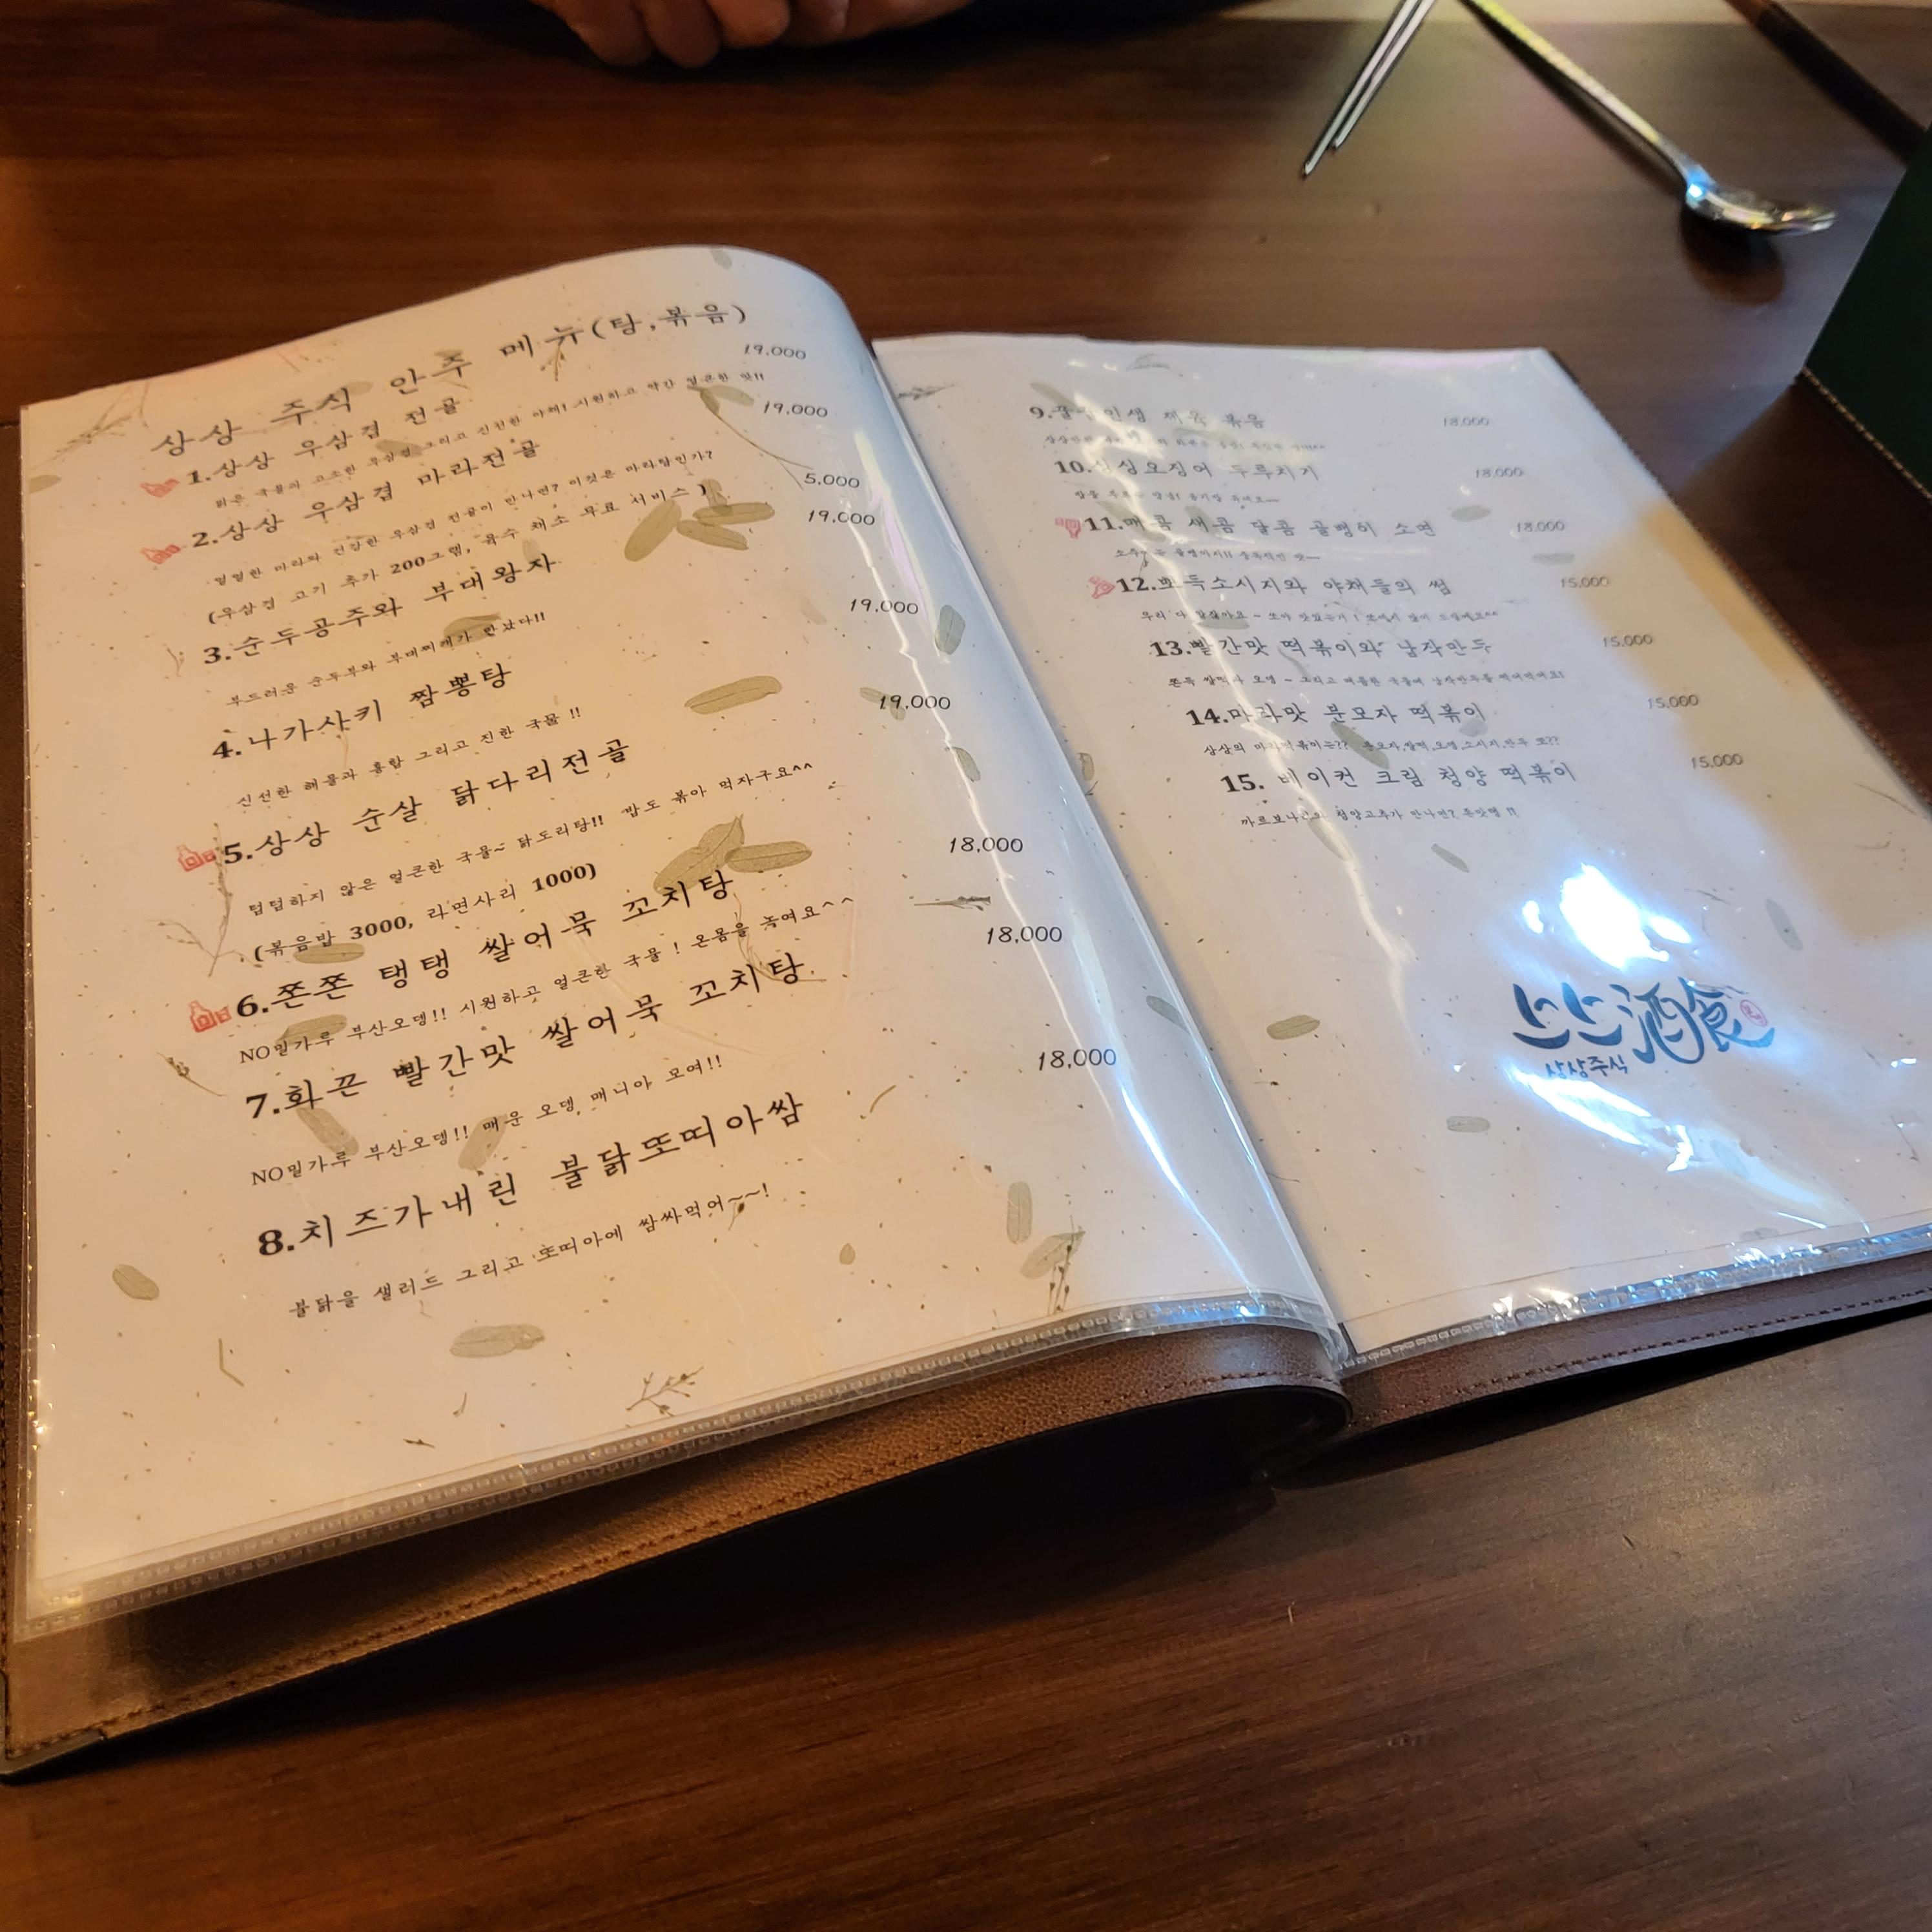 상상 주식 안주 메뉴(탕,볶음)
1.상상 우삼겹 전골 19,000
맑은 국물의 고소한 우삼겹 그리고 신선한 야채! 시원하고 약간 얼큰한 맛!!
2.상상 우삼겹 마라전골 19,000
얼얼한 마라와 건강한 우삼겹 전골이 만나면? 이것은 마라탕인가?
(우삼겹 고기 추가 200그램, 육수 채소 무료 서비스) 5,000
3.순두공주와 부대왕자 19,000
부드러운 순두부와 부대찌개가 만났다!!
4.나가사키 짬뽕탕 19,000
신선한 해물과 홍합 그리고 진한 국물 !!
5.상상 순살 닭다리전골 19,000
텁텁하지 않은 얼큰한 국물~ 닭도리탕!! 밥도 볶아 먹자구요^^
(볶음밥 3000, 라면사리 1000)
6.쫀쫀 탱탱 쌀어묵 꼬치탕 18,000
NO밀가루 부산오뎅!! 시원하고 얼큰한 국물 ! 온몸을 녹여요^^
7.화끈 빨간맛 쌀어묵 꼬치탕 18,000
NO밀가루 부산오뎅!! 매운 오뎅, 매니아 모여!!
8.치즈가내린 불닭또띠아쌈 18,000
불닭을 샐러드 그리고 또띠아에 쌈싸먹어~~!
9. 제육 볶음 18,000
10. 두루치기 18,000
11.매콤 새콤 달콤 골뱅이 소면 18,000
12.뽀득소시지와 야채들의 썸 15,000
13.빨간맛 떡볶이와 납작만두 15,000
쫀득 쌀떡과 오뎅 ~ 그리고 매콤한 국물에 납작만두를 찍어먹어요!
14.마라맛 분모자 떡볶이 15,000
상상의 마라떡볶이는?? 분모자,쌀떡,오뎅,소시지,만두 또??
15. 베이컨 크림 청양 떡볶이 15,000
까르보나라와 청양고추가 만나면? 존맛탱 !!
酒食
상상주식